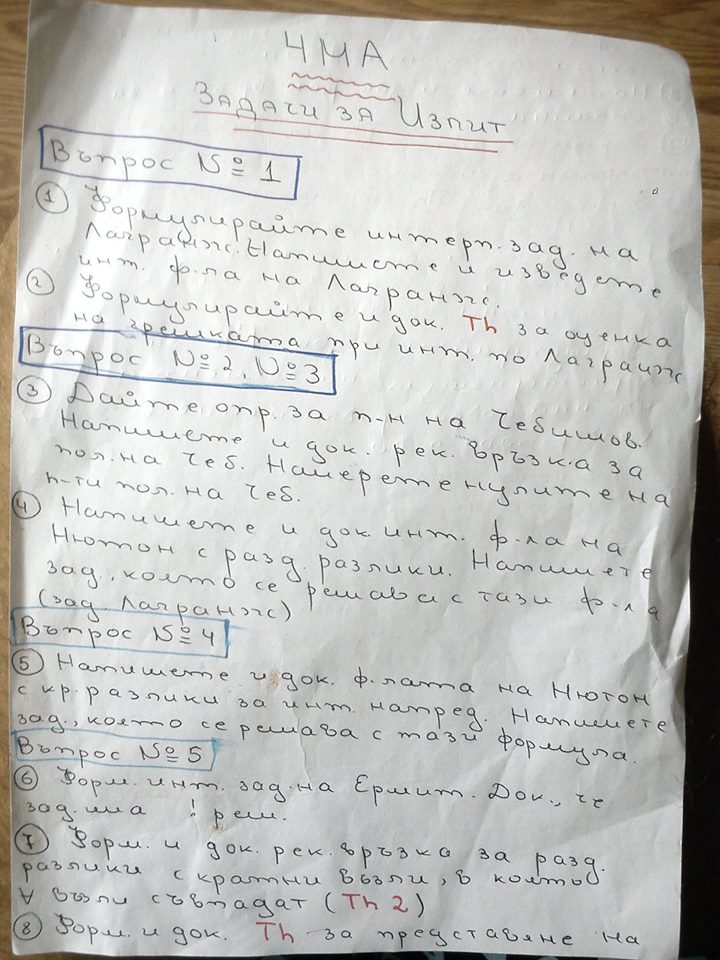 ЧМА
Задачи за Изпит
Въпрос № 1
① Формулирайте интерп. зад. на
Лагранж. Напишете и изведете
инт. ф-ла на Лагранж.
② Формулирайте и док. Th за оценка
на грешката при инт. по Лагранж
Въпрос № 2, № 3
③ Дайте опр. за п-н на Чебишов.
Напишете и док. рек. връзка за
пол. на Чеб. Намерете нулите на
n-ти пол. на Чеб.
④ Напишете и док. инт. ф-ла на
Нютон с разд. разлики. Напишете
зад., която се решава с тази ф-ла
(зад Лагранж)
Въпрос № 4
⑤ Напишете и док. ф-лата на Нютон
с кр. разлики за инт. напред. Напишете
зад., която се решава с тази формула.
Въпрос № 5
⑥ Форм. инт. зад. на Ермит. Док., че
зад. има ! реш.
⑦ Форм. и док. рек. връзка за разд.
разлики с кратни възли, в които
∀ възли съвпадат (Th 2)
⑧ Форм. и док. Th за представяне на